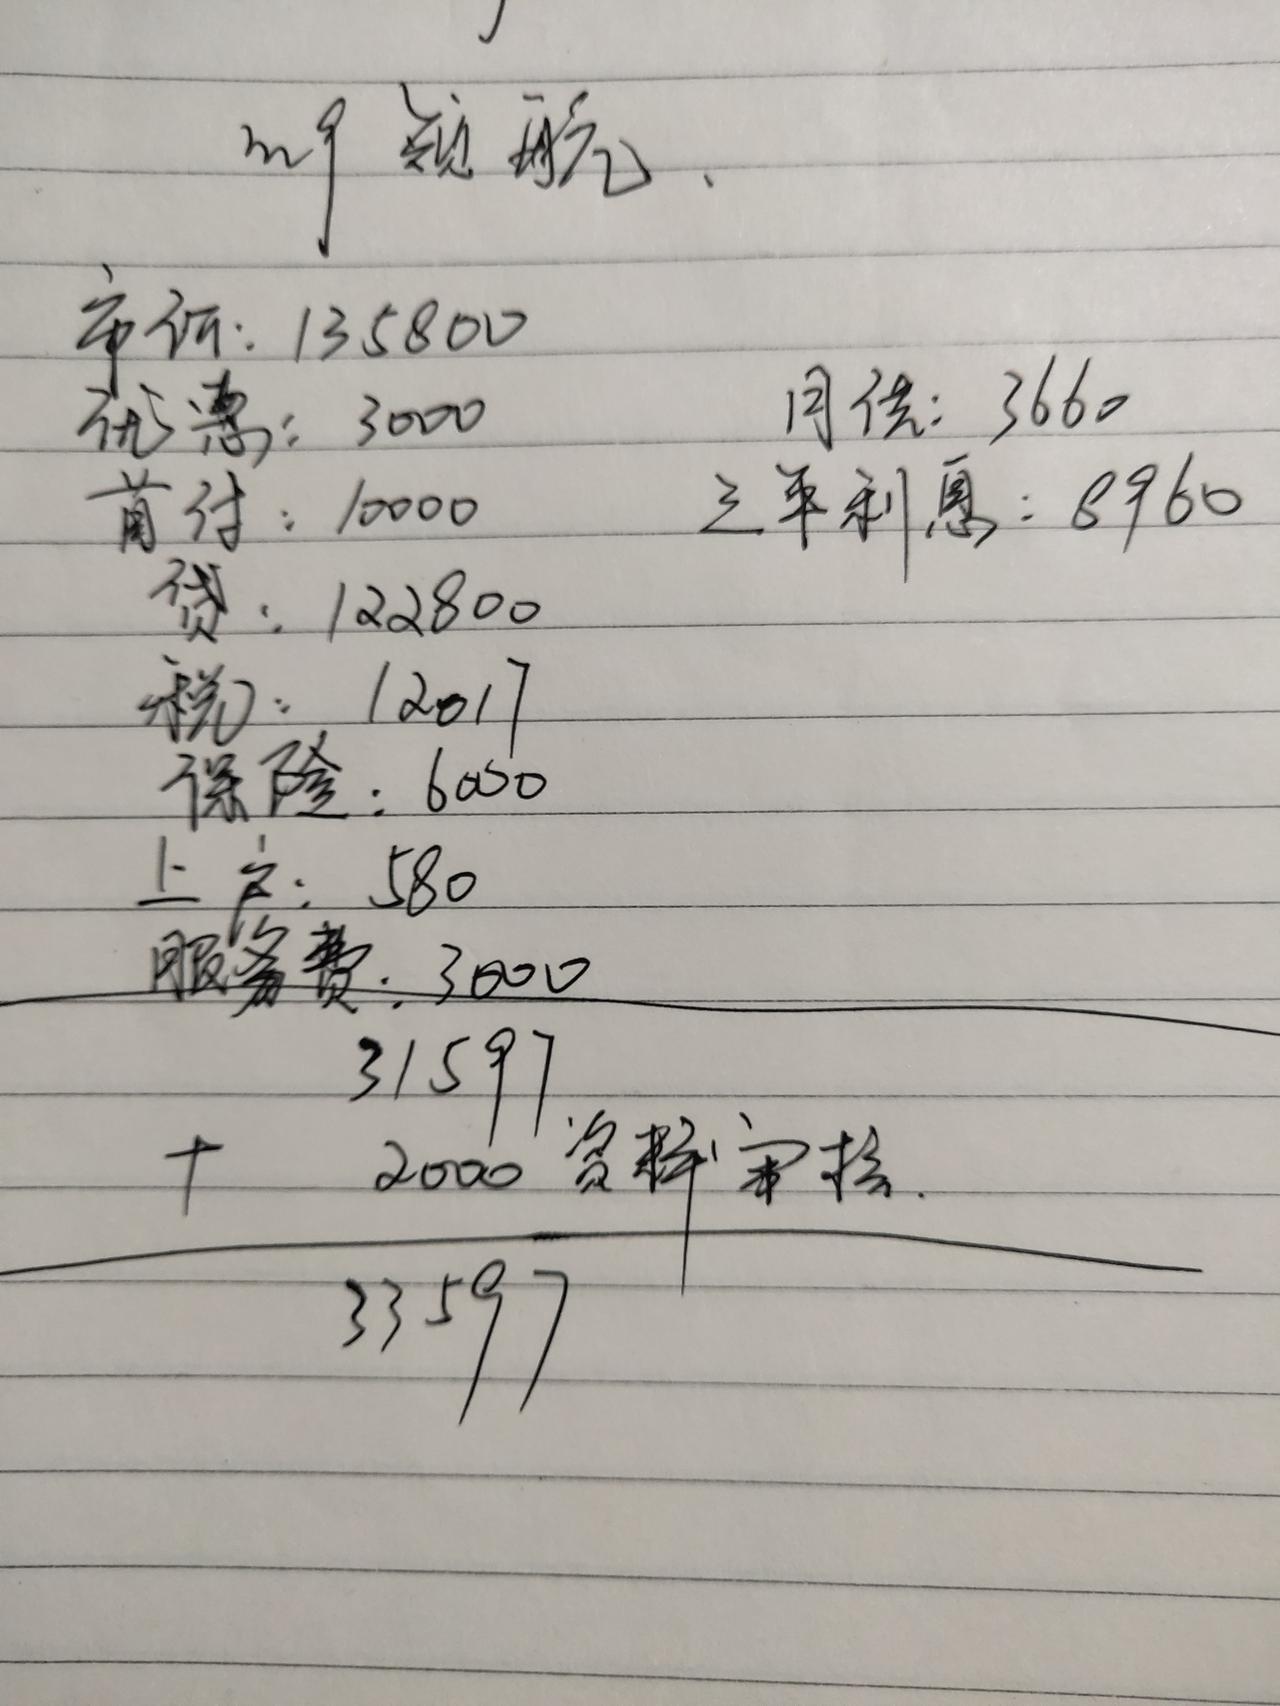 mg 领航.
市价: 135800
优惠: 3000
月供: 3660
首付: 10000
三年利息: 8960
贷: 122800
税: 12017
保险: 6000
上户: 580
服务费: 3000
31597
+ 2000 资料审核.
33597